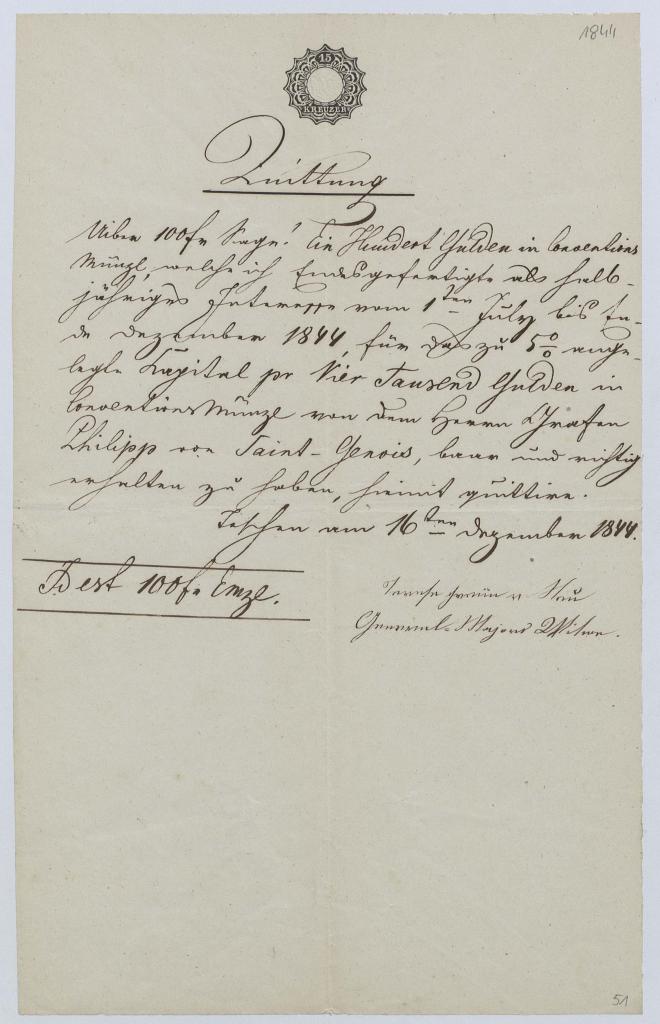 1844
15
KREUZER
Quittung
Uiber 100 fr Sage! Ein Hundert Gulden in Conventions
Münze, welche ich Endesgefertigte als halb-
jähriges Interesse vom 1ten July bis En-
de Dezember 1844, für das zu 5 % ange-
legte Kapital pr Vier Tausend Gulden in
Conventions Münze von dem Herrn Grafen
Philipp von Saint-Genois, baar und richtig
erhalten zu haben, hiemit quittire.
Teschen am 16ten Dezember 1844.
Dest 100 fr Cmze.
General-Majors Witwe.
51